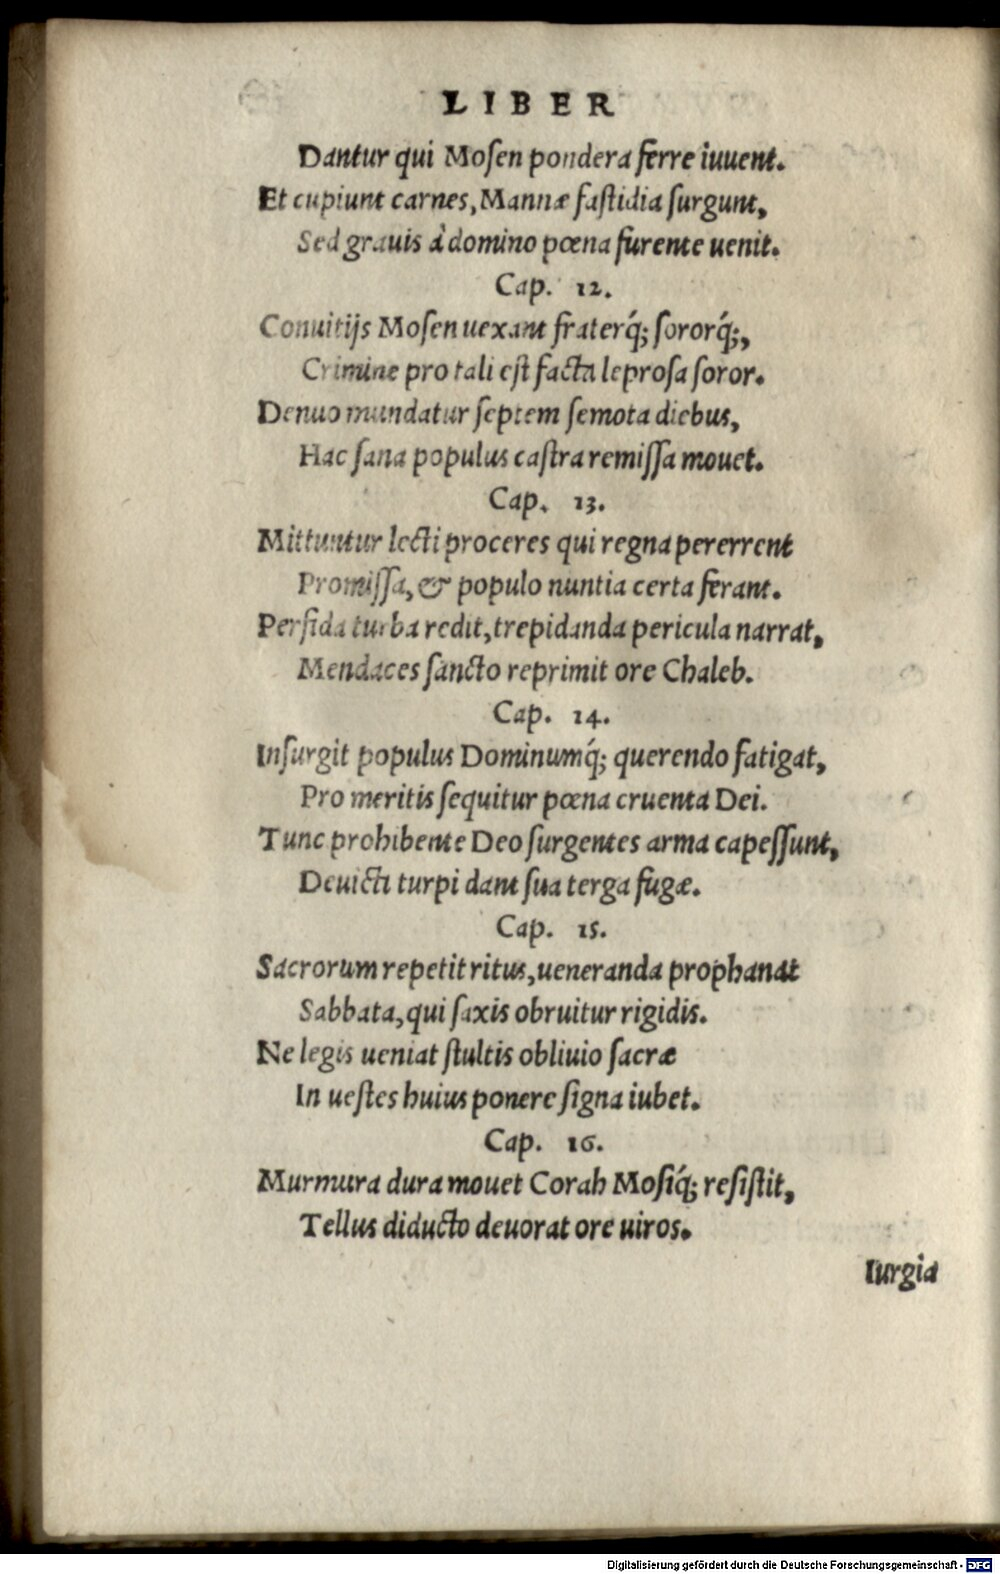 LIBER
Dantur qui Mosen pondera ferre iuuent.
Et cupiunt carnes, Mannæ fastidia surgunt,
Sed grauis à domino pœna furente uenit.
Cap. 12.
Conuitijs Mosen uexant fraterq́; sororq́;,
Crimine pro tali est facta leprosa soror.
Denuo mundatur septem semota diebus,
Hac sana populus castra remissa mouet.
Cap. 13.
Mittuntur lecti proceres qui regna pererrent
Promissa, & populo nuntia certa ferant.
Perfida turba redit, trepidanda pericula narrat,
Mendaces sancto reprimit ore Chaleb.
Cap. 14.
Insurgit populus Dominumq́; querendo fatigat,
Pro meritis sequitur pœna cruenta Dei.
Tunc prohibente Deo surgentes arma capessunt,
Deuicti turpi dant sua terga fugæ.
Cap. 15.
Sacrorum repetit ritus, ueneranda prophanat
Sabbata, qui saxis obruitur rigidis.
Ne legis ueniat stultis obliuio sacræ
In uestes huius ponere signa iubet.
Cap. 16.
Murmura dura mouet Corah Mosiq́; resistit,
Tellus diducto deuorat ore uiros.
Iurgia
Digitalisierung gefördert durch die Deutsche Forschungsgemeinschaft - DFG